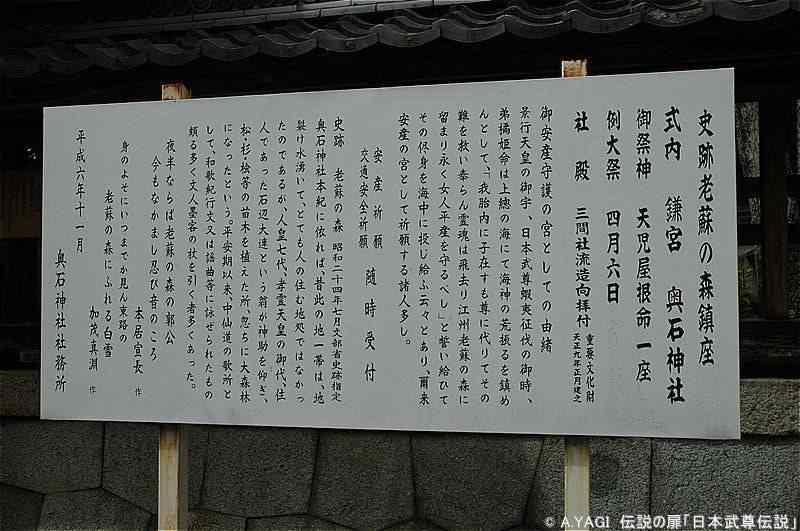 史跡老蘇の森鎮座
式内 鎌宮 奥石神社
御祭神 天児屋根命一座
例大祭 四月六日
社殿 三間社流造向拝付 重要文化財
天正九年正月建之
御安産守護の宮としての由緒
景行天皇の御宇、日本武尊蝦夷征伐の御時、
弟橘姫命は上總の海にて海神の荒振るを鎮め
んとして、「我胎内に子在すも尊に代りてその
難を救い奉らん霊魂は飛去り江州老蘇の森に
留まり永く女人平産を守るべし」と誓い給ひて
その侭身を海中に投じ給ふ云々とあり、爾来
安産の宮として祈願する諸人多し。
安産祈願
交通安全祈願
随時受付
史跡 老蘇の森 昭和二十四年七月文部省史跡指定
奥石神社本紀に依れば、昔此の地一帯は、地
裂け水湧いて、とても人の住む地処ではなかっ
たのであるが、人皇七代、孝霊天皇の御代、住
人であった石辺大連という翁が神助を仰ぎ、
松・杉・桧等の苗木を植えた所、忽ちに大森林
になったという。平安期以来、中仙道の歌所と
して、和歌紀行文又は謡曲等に詠ぜられたもの
頗る多く文人墨客の杖を引く者多くあった。
夜半ならば老蘇の森の郭公
今もなかまし忍び音のころ
本居宣長 作
身のよそにいつまでか見ん東路の
老蘇の森にふれる白雪
加茂真淵 作
平成六年十一月
奥石神社社務所
© A.YAGI 伝説の扉「日本武尊伝説」